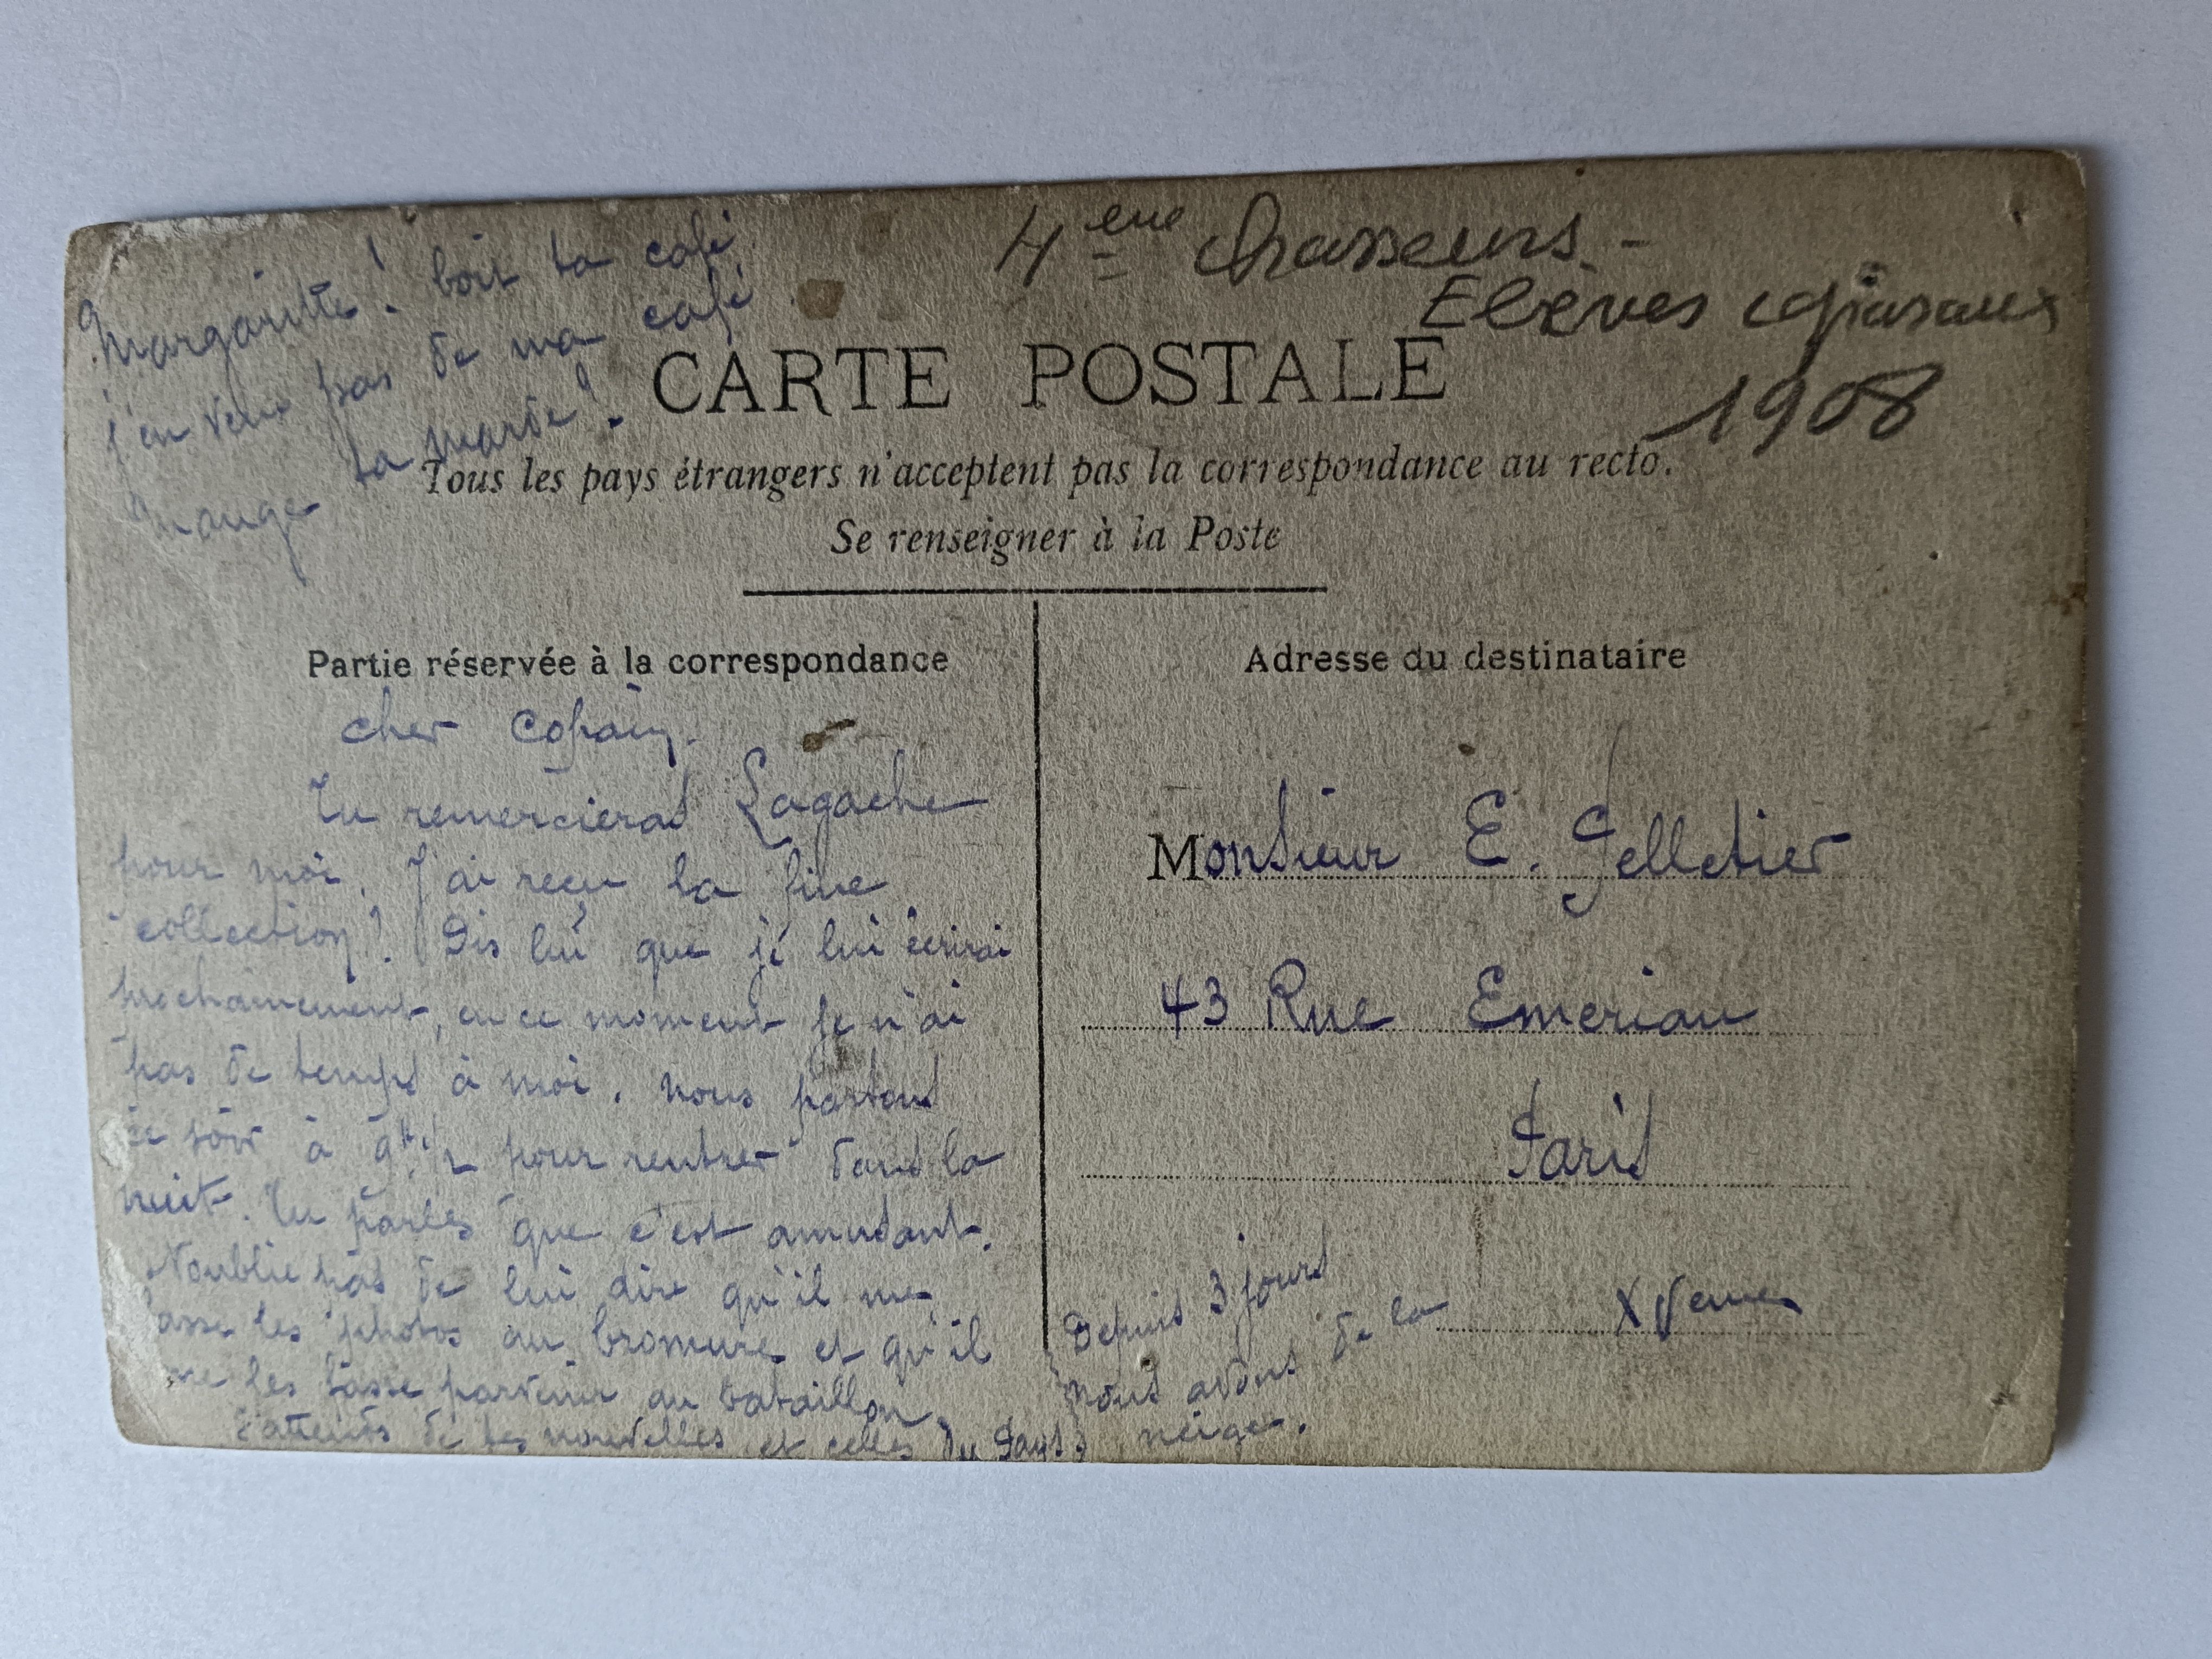 Margaritte! boit ta café
j'en veux pas de ma café.
mange ta marde!.
4 eme chasseurs -
Elèves caporaux
1908
CARTE POSTALE
Tous les pays étrangers n'acceptent pas la correspondance au recto.
Se renseigner à la Poste
Partie réservée à la correspondance
cher Copain.
Tu remercieras Lagache
pour moi. J'ai reçu la fine
collection! Dis lui que je lui écrirai
prochainement, en ce moment je n'ai
pas de temps à moi. nous partons
ce soir à 9h 1/2 pour rentrer dans la
nuit. Tu parles que c'est amusant.
N'oublie pas de lui dire qu'il me
fasse les photos au bromure et qu'il
me les fasse parvenir au bataillon
J'attends de tes nouvelles et celles du Pays.
Adresse du destinataire
Monsieur E. Pelletier
43 Rue Emeriau
Paris
XVeme
Depuis 3 jours
nous avons de la
neige.